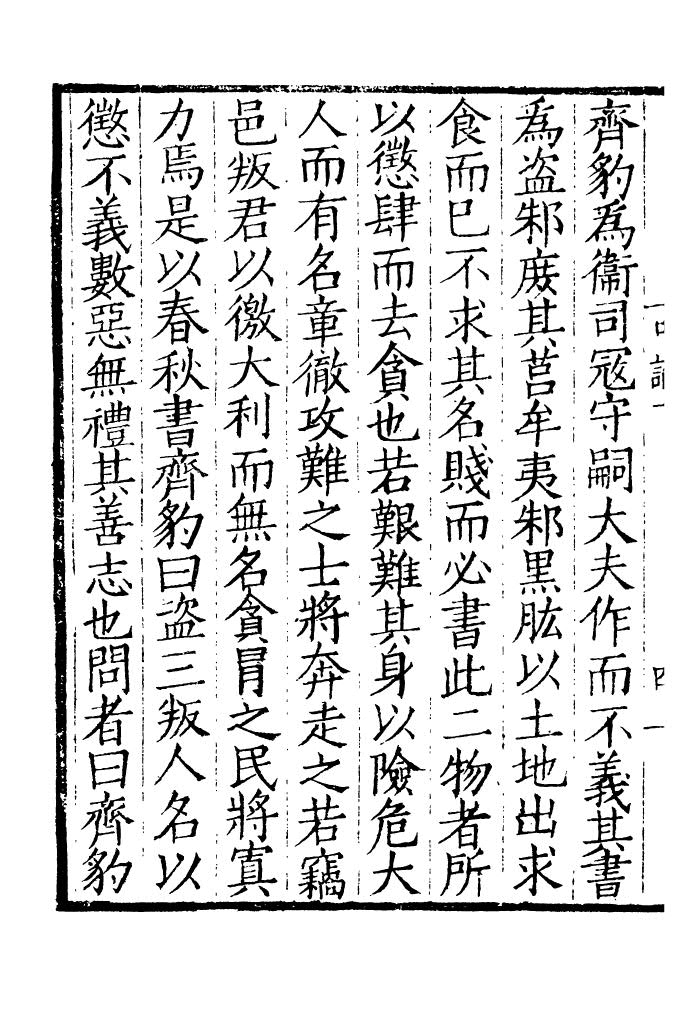 齊豹為衞司冦守嗣大夫作而不義其書
為盗邾庻其莒牟夷邾黒肱以土地出求
食而已不求其名賤而必書此二物者所
以懲肆而去貪也若艱難其身以險危大
人而有名章徹攻難之士將奔走之若竊
邑叛君以徼大利而無名貪冒之民將寘
力焉是以春秋書齊豹曰盗三叛人名以
懲不義數惡無禮其善志也問者曰齊豹